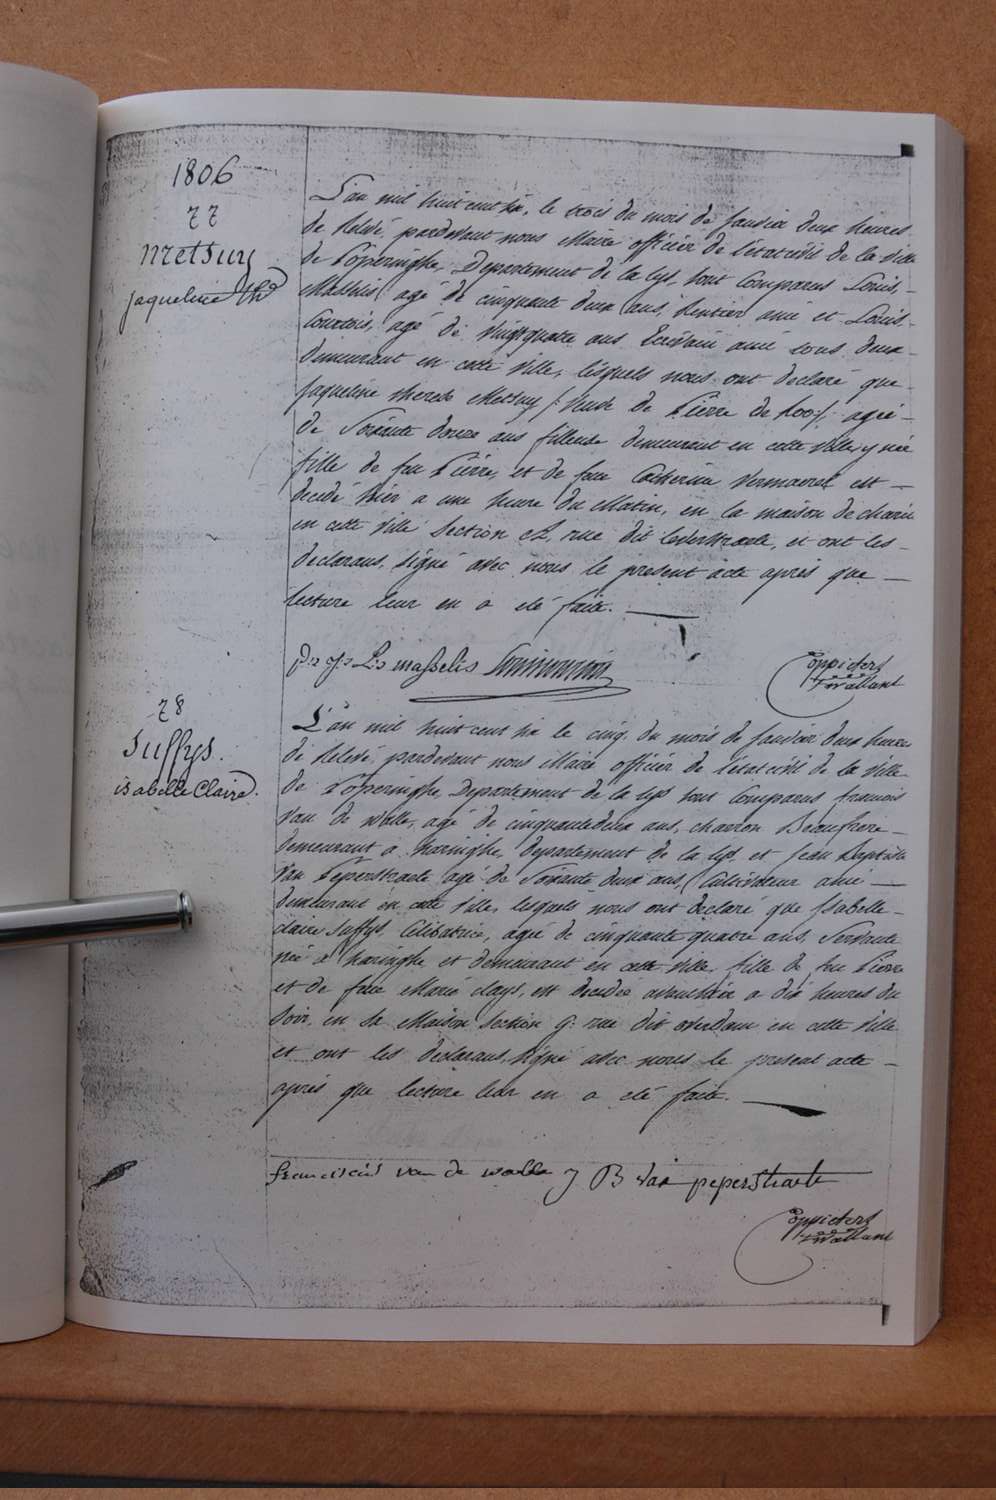 1806
77
Metsuy
Jaqueline Th
L'an mil huit cent six, le trois du mois de Janvier deux heures
de Relevé, pardevant nous Maire officier de l'état civil de la ville
de Poperinghe, Departement de la lys, sont Comparus Louis
Masselis, agé de cinquante deux ans, Rentier amie et Louis
agé de vingtquatre ans Ecrivain amie tous deux
demeurant en cette ville, lesquels nous ont declaré que
Jaqueline Therese Metsuy (Veuve de Pierre de Roo) agée
de Soixante douze ans fileuse demeurant en cette ville y née
fille de feu Pierre, et de feue Catherine Vermaerel est
decedé hier a une heure du Matin, en la maison de charié
en cette ville section rue dit et ont les
declarans, signé avec nous le present acte après que
lecture leur en a eté faite.
Ls masselis
Coppieters
Wallant
78
Suffys.
isabelle Claire.
L'an mil huit cent six le cinq du mois de Janvier deux heures
de Relevé, pardevant nous Maire officier de l'état civil de la Ville
de Poperinghe, Departement de la lys sont Comparus francois
Van de Walle, agé de cinquante deux ans, charron Beaufrere
demeurant a haringhe, departement de la lys, et Jean Baptiste
Van Peperstraete agé de Soixante deux ans, Cultivateur amie
demeurant en cette ville, lesquels nous ont declaré que Isabelle
claire Suffys, Celibatrice, agée de cinquante quatre ans, Servante
née a haringhe et demeurant en cette ville, fille de feu Pierre
et de feue Marie Clays, est decedée avanthier a dix heures du
Soir, en sa Maison section g. rue dit overdam en cette ville
et ont les declarans, signé avec nous le present acte
après que lecture leur en a eté faite.
franciscus van de walle J B Van peperstraete
Coppieters
Wallant